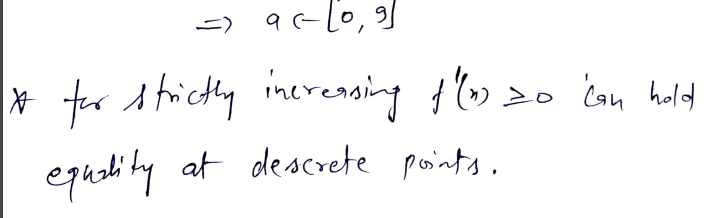 => a ∈ [0, 9]
* for strictly increasing f'(x) ≥ 0 can hold
equality at descrete points.